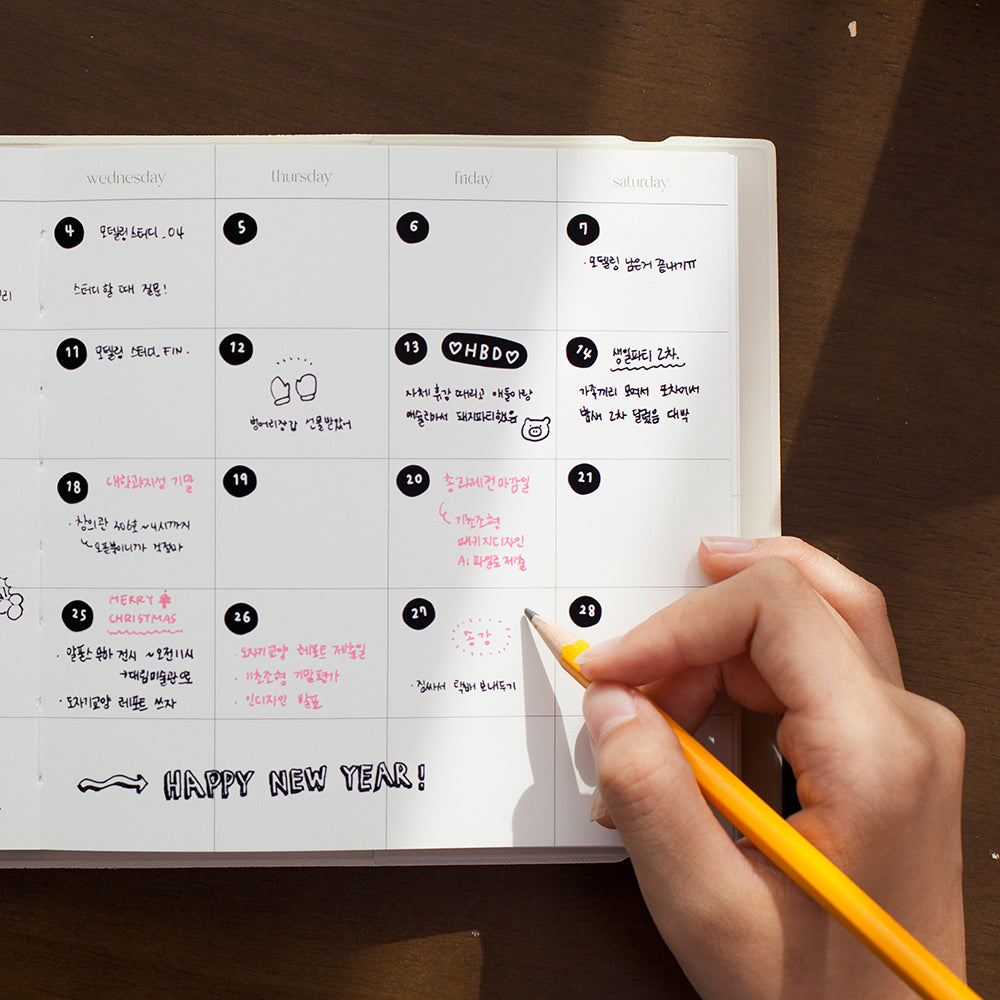 wednesday thursday friday saturday
4 모델링 스터디_04
스터디 할 때 질문!
5
6
7
· 모델링 남은거 끝내기ㅠ
11 모델링 스터디_FIN.
12
벙어리장갑 선물받았어
13 ♡HBD♡
자체 휴강 때리고 애들이랑
애슐리가서 돼지파티했음
14 생일파티 2차.
가족끼리 모여서
밤새 2차 달렸음 대박
18 대학과지성 기말
· 창의관 406호 ~4시까지
오픈북이니까 걱정마
19
20 총괴제전 마감일
기초조형
패키지디자인
Ai 파일로 제출
21
25 MERRY
CHRISTMAS
· 알폰스 무하 전시 ~오전11시
→대림미술관
· 도자기교양 레포트 쓰자
26
· 도자기교양 레포트 제출일
· 기초조형 기말평가
· 인디자인 발표
27
종강
· 짐싸서 택배 보내두기
28
HAPPY NEW YEAR!